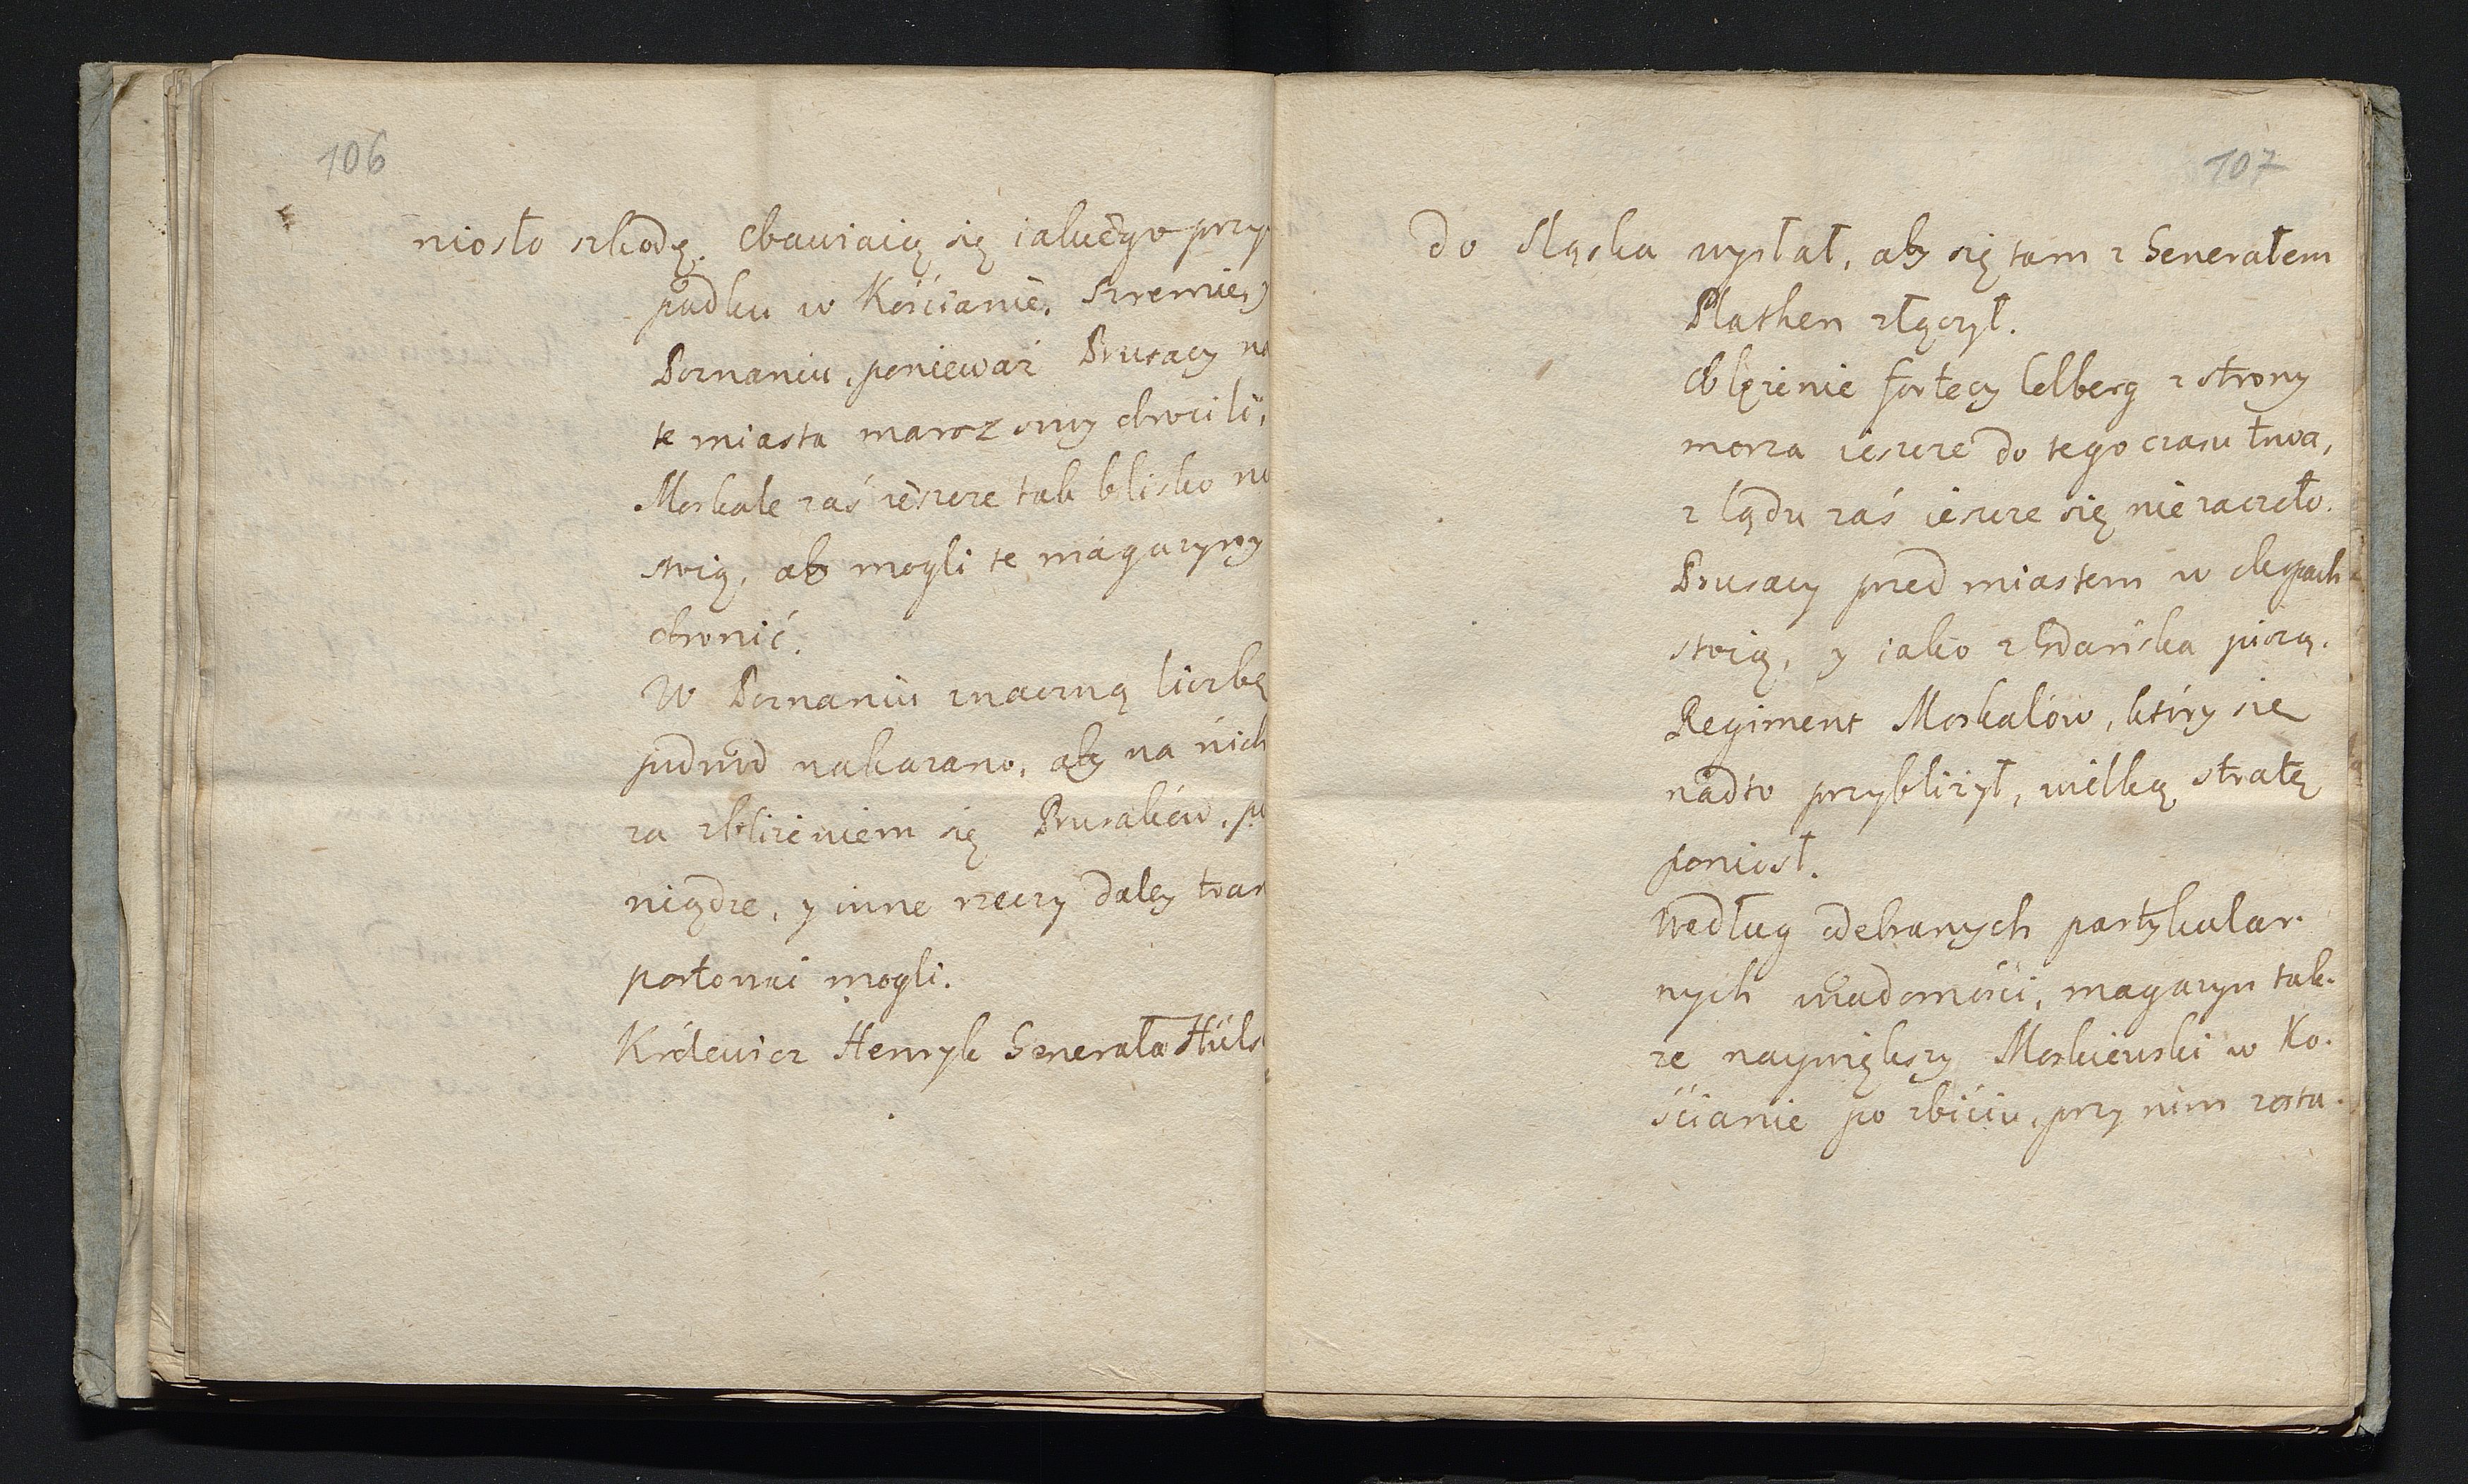 106
niosło szkodę. Obawiaią się iakiego przy
padku w Kościanie, Szremie, y
Poznaniu, ponieważ Prusacy na
te miasta marsz swoy obrocili,
Moskale zaś ieszcze tak blisko nie
stoią, ab mogli te magazyny
obronić.
W Poznaniu znaczną liczbę
podwod nakazano, aby na nich
za zbliżeniem się Prusaków, pie
niądze, y inne rzeczy daley tran
portować mogli.
Królewicz Henryk Generała Hüls
107
do Sląska wysłał, aby się tam z Generałem
Plathen złączył.
Oblężenie fortecy Colberg z strony
morza ieszcze do tego czasu trwa,
z lądu zaś ieszcze się nie zaczęło.
Prusacy pred miastem w okopach
stoią, y iako z Gdańska piszą.
Regiment Moskalów, który się
nadto przybliżył, wielką stratę
poniosł.
Według odebranych partykular.
nych wiadomości, magazyn tak.
że naywiększy Moskiewski w Ko.
ścianie po zbiciu, przy nim zosta.